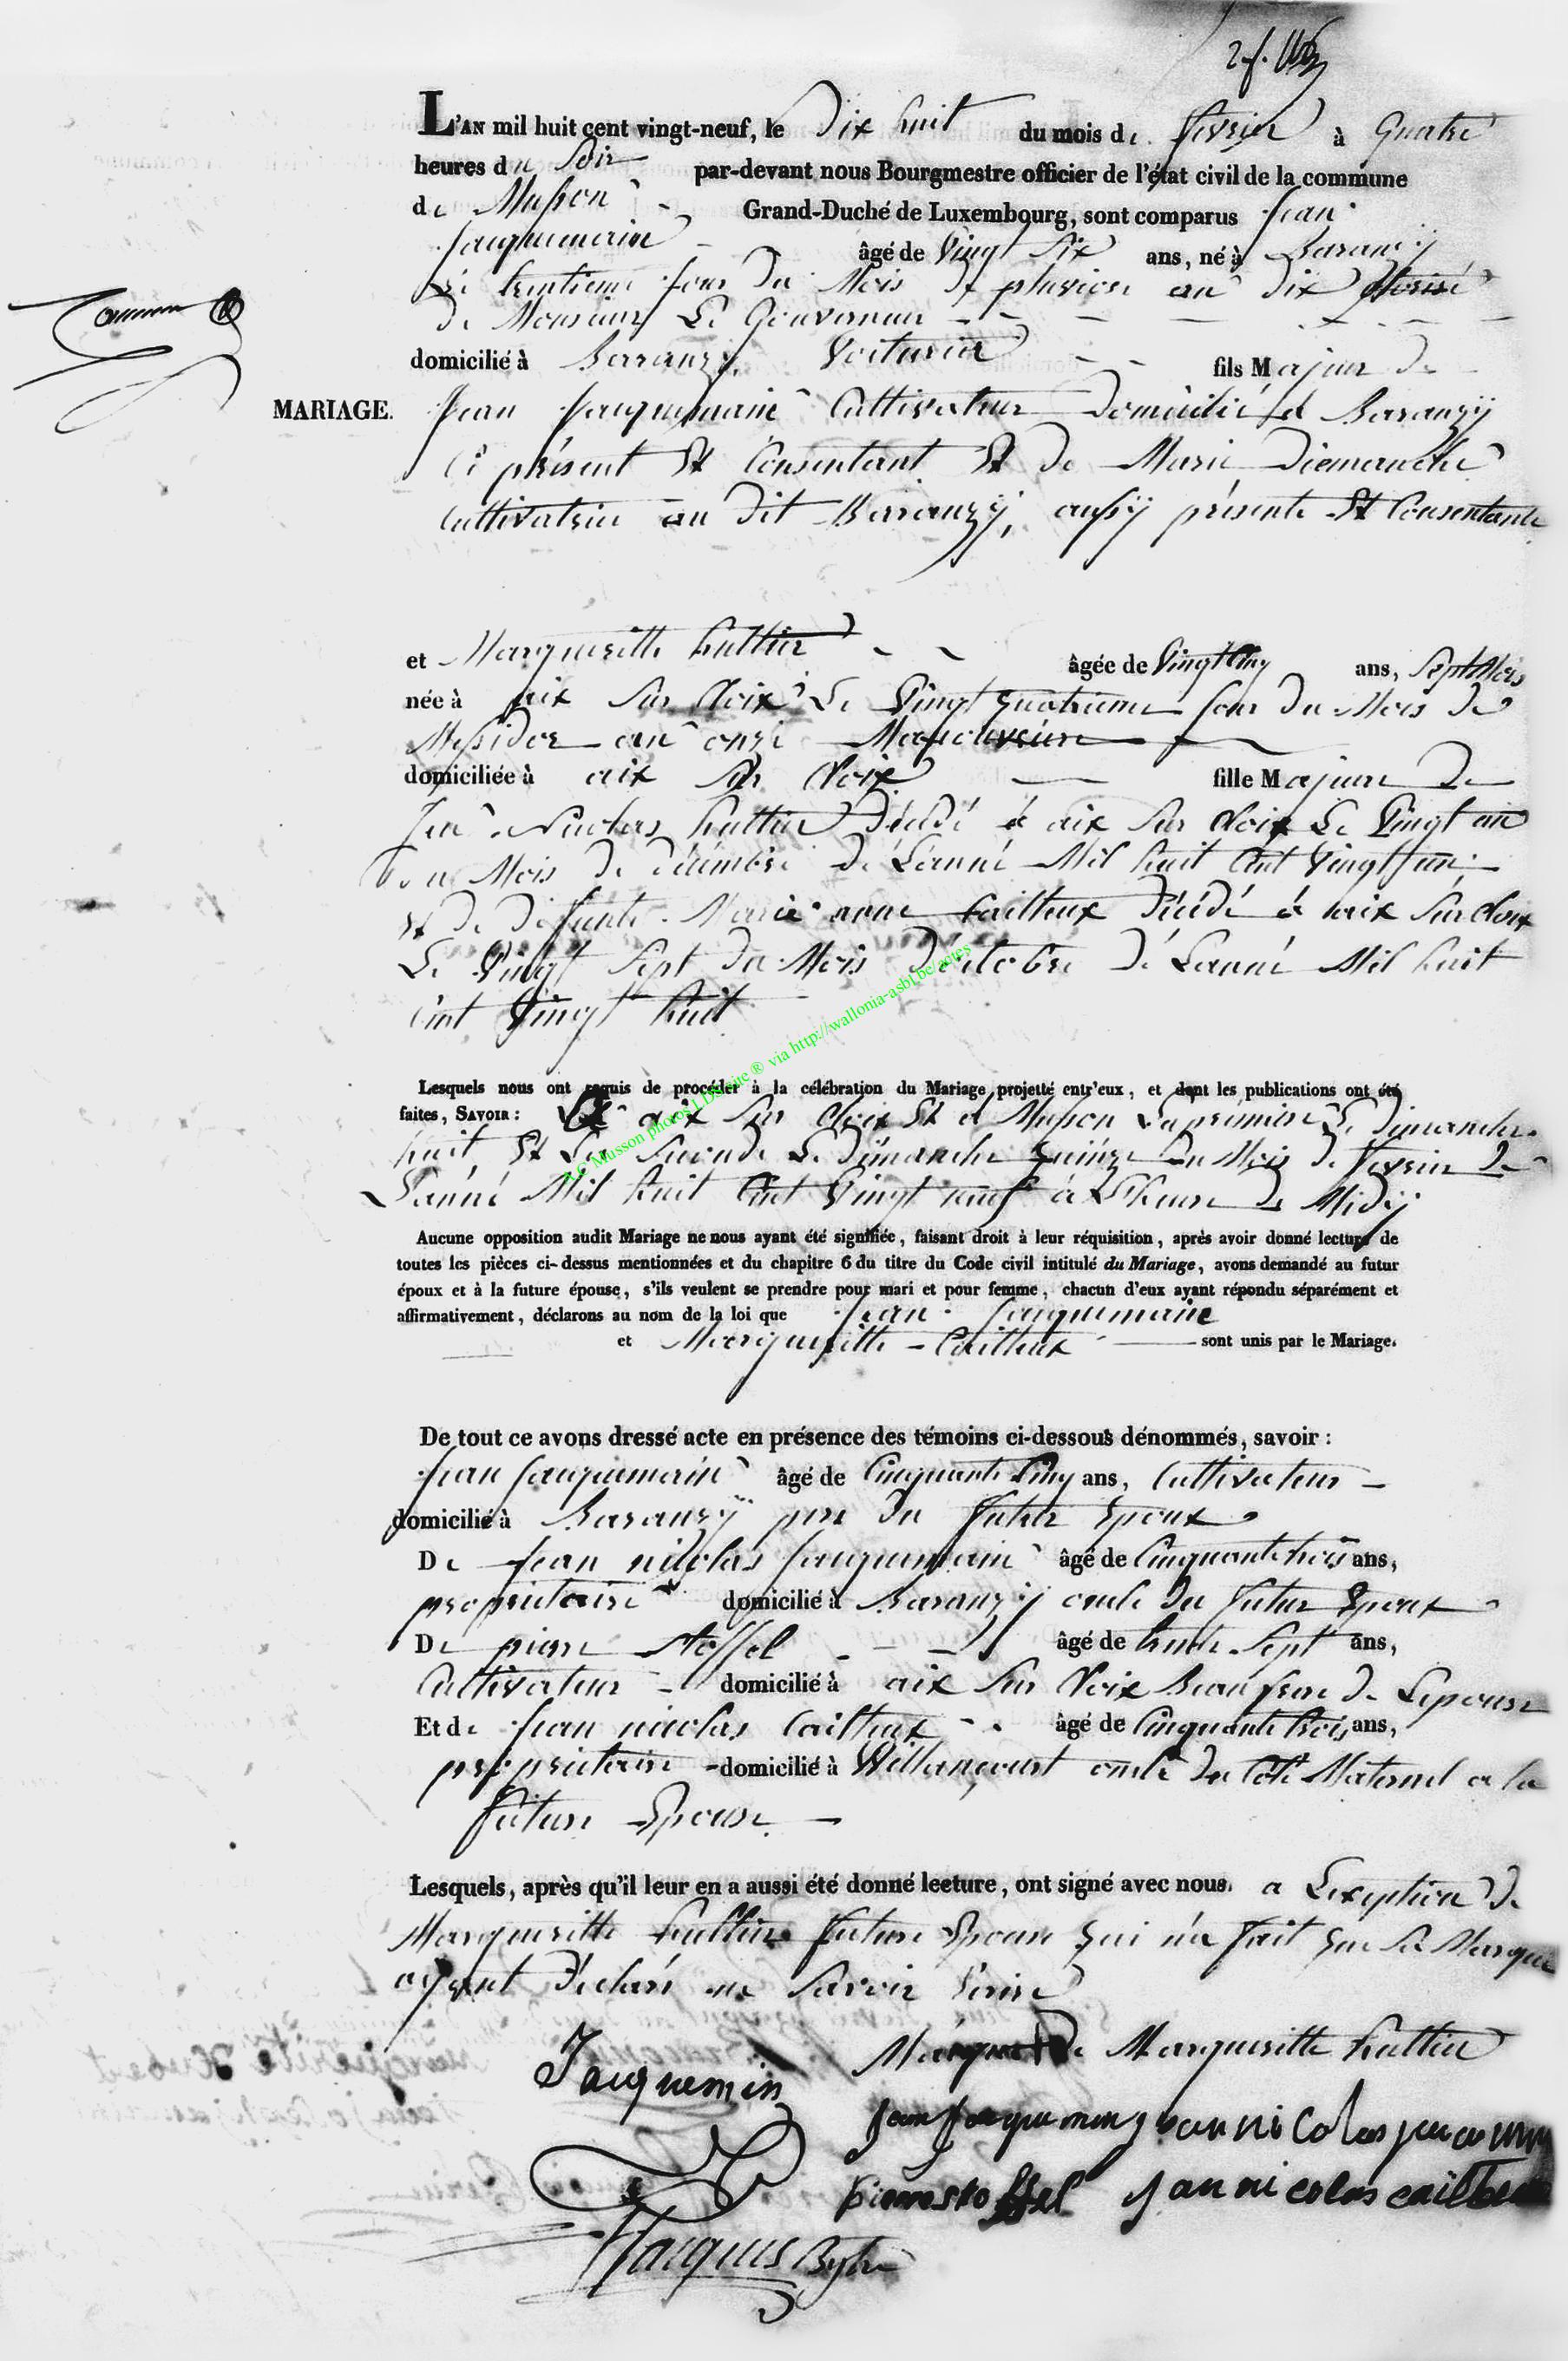 L'AN mil huit cent vingt-neuf, le Dix huit du mois de fevrier à Quatre
heures du Soir par-devant nous Bourgmestre officier de l'état civil de la commune
de Musson Grand-Duché de Luxembourg, sont comparus Jean
Jacquemain âgé de Vingt Six ans, né à Baranzÿ
Le trentieme jour du Mois de pluviose an dix
de Monsieur Le Gouverneur
domicilié à Baranzÿ, Voiturier fils Majeur De
MARIAGE.
Jean Jacquemain Cultivateur Domicilié à Baranzÿ
Ci présent Et Consentant Et de Marie Diemanche
Cultivatrice au dit Baranzÿ, aussÿ présente Et Consentante
et Margueritte huttin âgée de Vingt Cinq ans, Sept Mois
née à aix Sur Cloix Le Vingt quatrieme jour Du Mois De
Messidor an onze Manouvriere
domiciliée à aix Sur Cloix fille Majeure De
Jean Nicolas huttin Décédé à aix Sur Cloix Le Vingt un
du Mois de décembre de Lanné Mil huit Cent Vingt un;
Et De Défunte Marie anne Cailteux Décédé à aix Sur Cloix
Le Vingt Sept du Mois D'octobre de Lanné Mil huit
Cent Vingt huit
Lesquels nous ont requis de procéder à la célébration du Mariage projetté entr'eux, et dont les publications ont été
faites, SAVOIR: à aix Sur Cloix Et à Musson La premiere Le Dimanche
huit Et La Seconde Le Dimanche quinze du Mois de fevrier De
Lanné Mil huit Cent Vingt neuf à L'heure de Midÿ
Aucune opposition audit Mariage ne nous ayant été signifiée, faisant droit à leur réquisition, après avoir donné lecture de
toutes les pièces ci-dessus mentionnées et du chapitre 6 du titre du Code civil intitulé du Mariage, avons demandé au futur
époux et à la future épouse, s'ils veulent se prendre pour mari et pour femme, chacun d'eux ayant répondu séparément et
affirmativement, déclarons au nom de la loi que Jean Jacquemain
et Margueritte Cailteux sont unis par le Mariage.
De tout ce avons dressé acte en présence des témoins ci-dessous dénommés, savoir:
Jean Jacquemain âgé de Cinquante Cinq ans, Cultivateur
domicilié à Baranzÿ pere du futur Epoux
De Jean nicolas Jacquemain âgé de Cinquante trois ans,
proprietaire domicilié à Baranzÿ oncle du futur Epoux
De pierre Stoffel âgé de trente Sept ans,
Cultivateur domicilié à aix Sur Cloix Beau frere de Lepouse
Et de Jean nicolas Cailteux âgé de Cinquante trois ans,
proprietaire domicilié à Willancourt oncle du Coté Maternel a la
future Epouse
Lesquels, après qu'il leur en a aussi été donné lecture, ont signé avec nous. a Lexeption de
Margueritte huttin future Epouse qui n'a fait que Sa Marque
ayant Déclaré ne Savoir Ecrire
Jacquemin Marque de Margueritte huttin
Jean Jacquemin Jean nicolas
pierre stoffel Jean nicolas cailteux
Jacques
A.C Musson photos LDS site ® via http://wallonia-asbl.be/actes